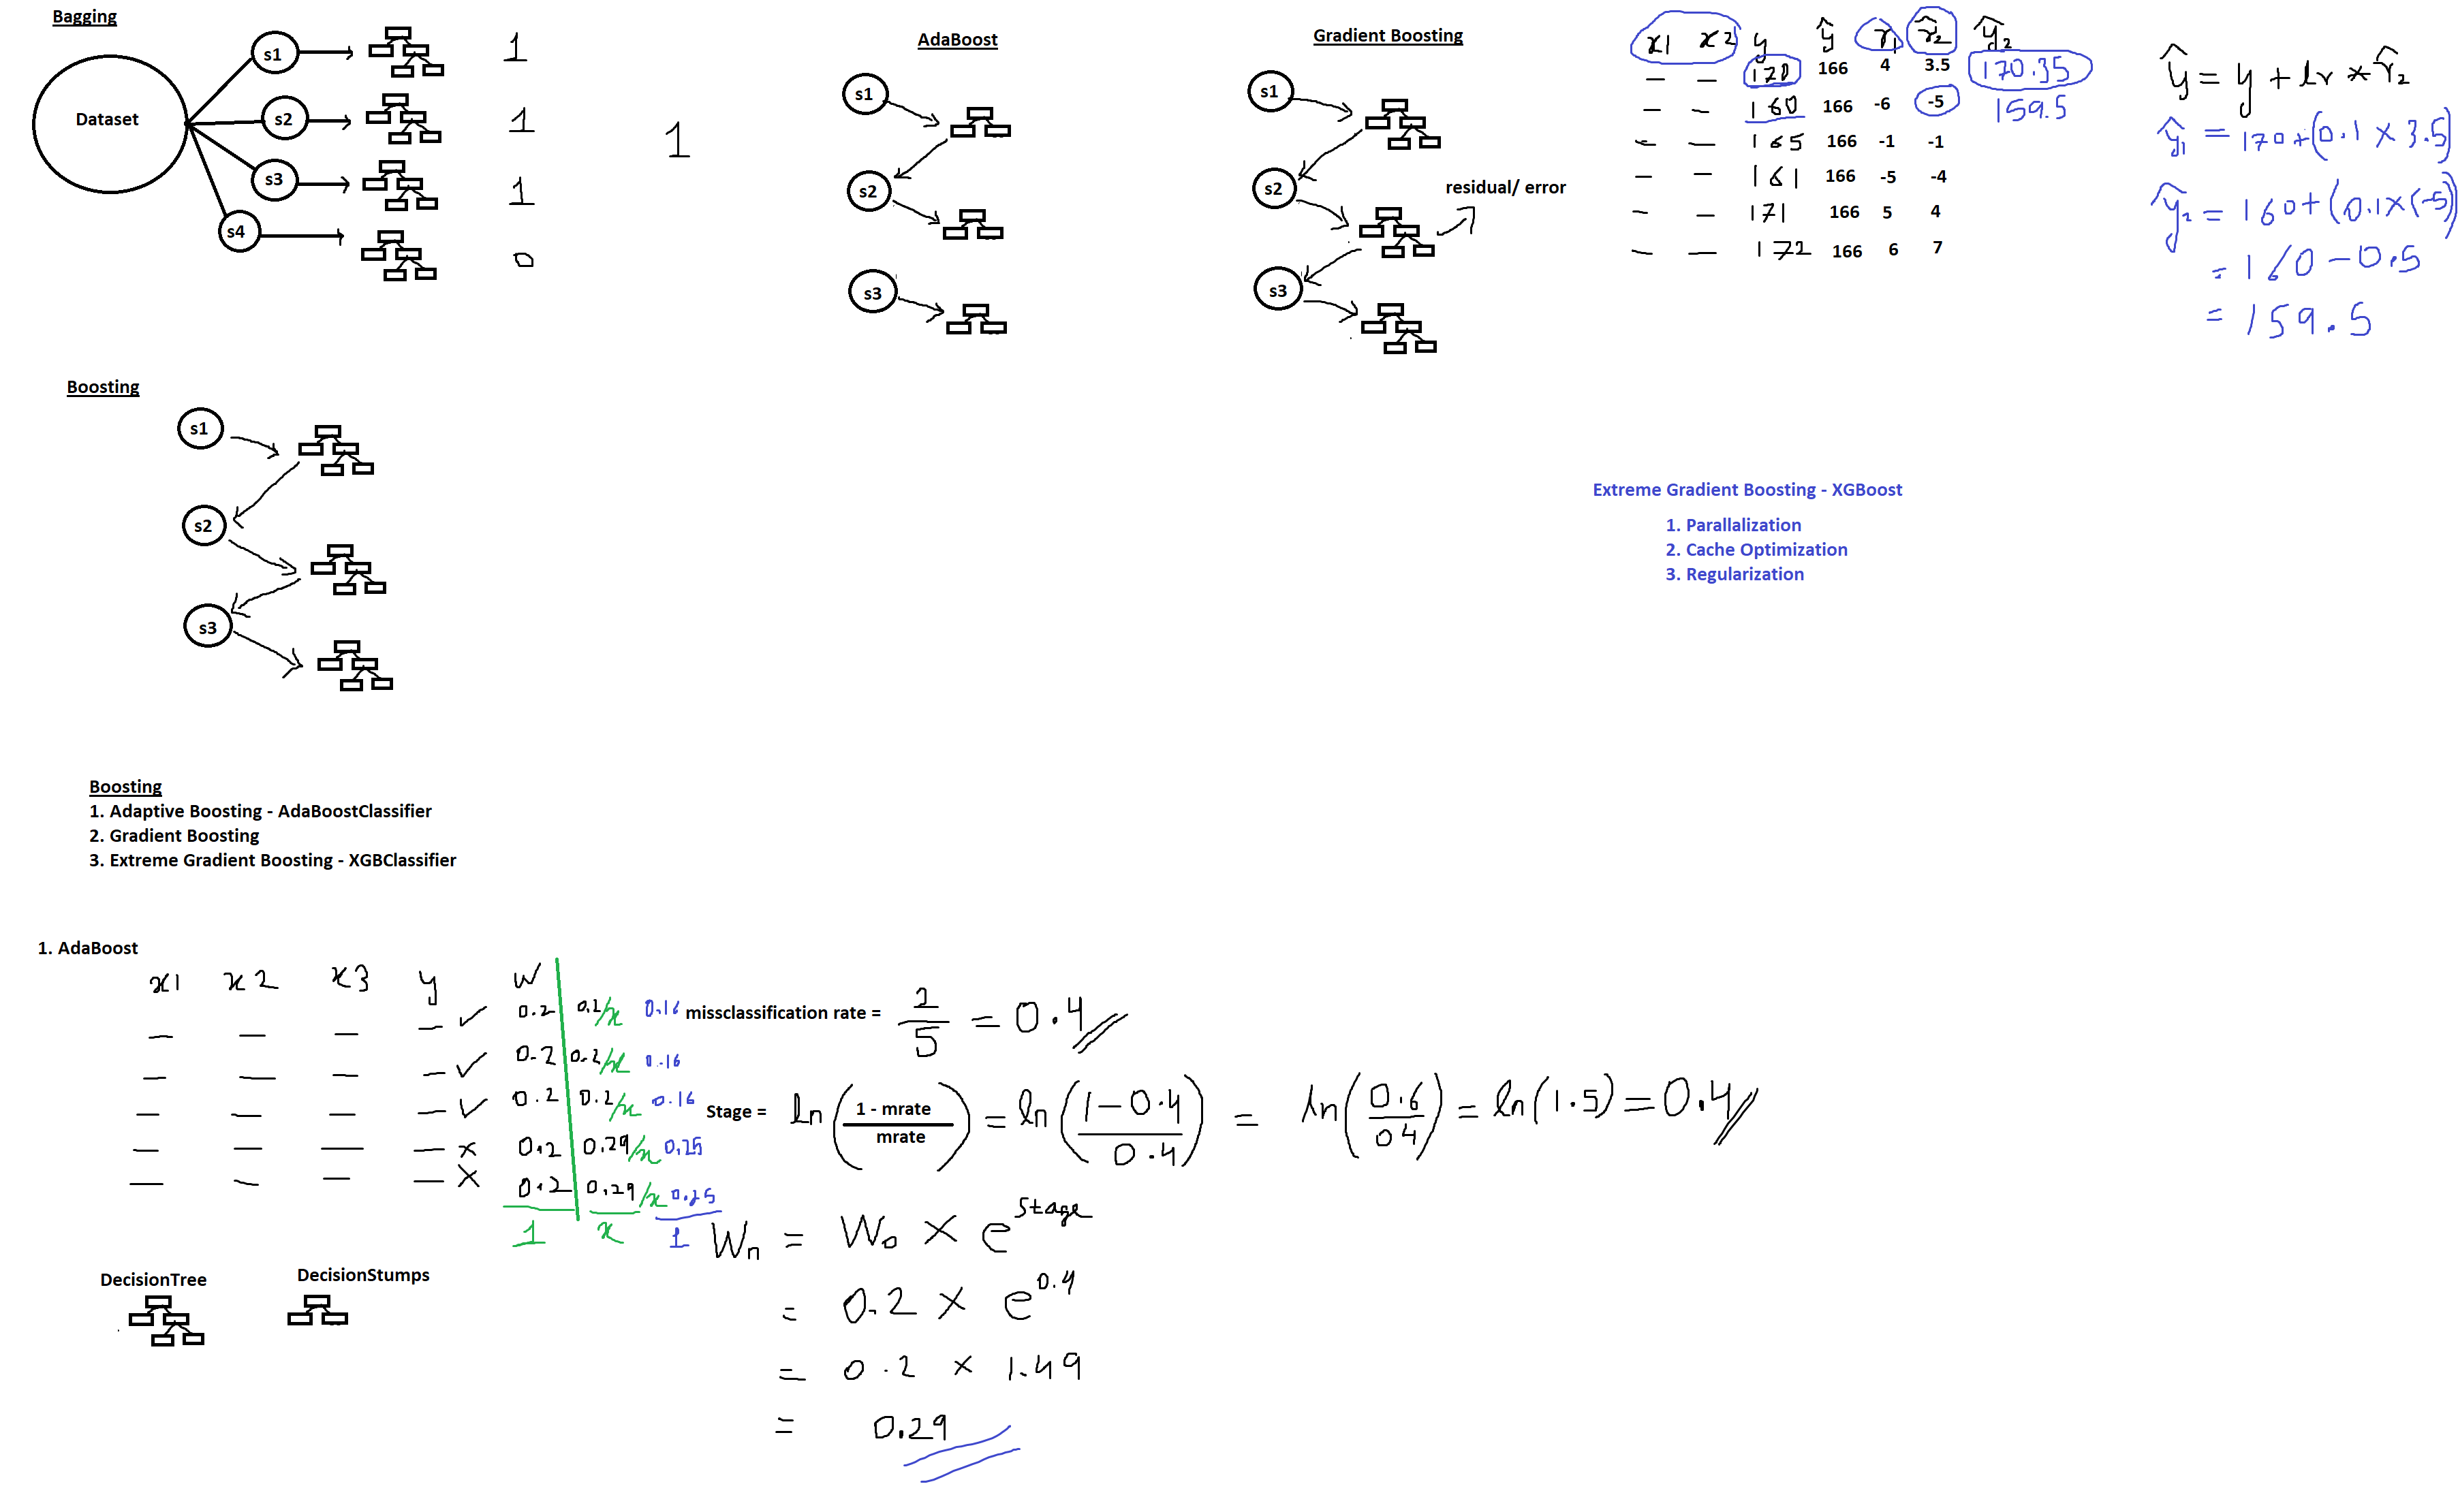 Bagging
Dataset
s1
1
s2
1
s3
1
s4
0
1
AdaBoost
s1
s2
s3
Gradient Boosting
s1
s2
residual/ error
s3
x1 x2 y ŷ r1 r̂2 ŷ2
— — 170 166 4 3.5 170.35
— — 160 166 -6 -5 159.5
— — 165 166 -1 -1
— — 161 166 -5 -4
— — 171 166 5 4
— — 172 166 6 7
ŷ = y + lr * r̂2
ŷ1 = 170+(0.1 × 3.5)
ŷ2 = 160+(0.1×(-5))
= 160-0.5
= 159.5
Boosting
s1
s2
s3
Extreme Gradient Boosting - XGBoost
1. Parallalization
2. Cache Optimization
3. Regularization
Boosting
1. Adaptive Boosting - AdaBoostClassifier
2. Gradient Boosting
3. Extreme Gradient Boosting - XGBClassifier
1. AdaBoost
x1 x2 x3 y w
— — — — ✓ 0.2 0.2/x 0.16
— — — — ✓ 0.2 0.2/x 0.16
— — — — ✓ 0.2 0.2/x 0.16
— — — — × 0.2 0.29/x 0.25
— — — — × 0.2 0.29/x 0.25
1 x 1
missclassification rate = 2/5 = 0.4
Stage = ln(1 - mrate / mrate) = ln(1-0.4 / 0.4) = ln(0.6 / 04) = ln(1.5) = 0.4
Wn = Wo × e^Stage
= 0.2 × e^0.4
= 0.2 × 1.49
= 0.29
DecisionTree
DecisionStumps